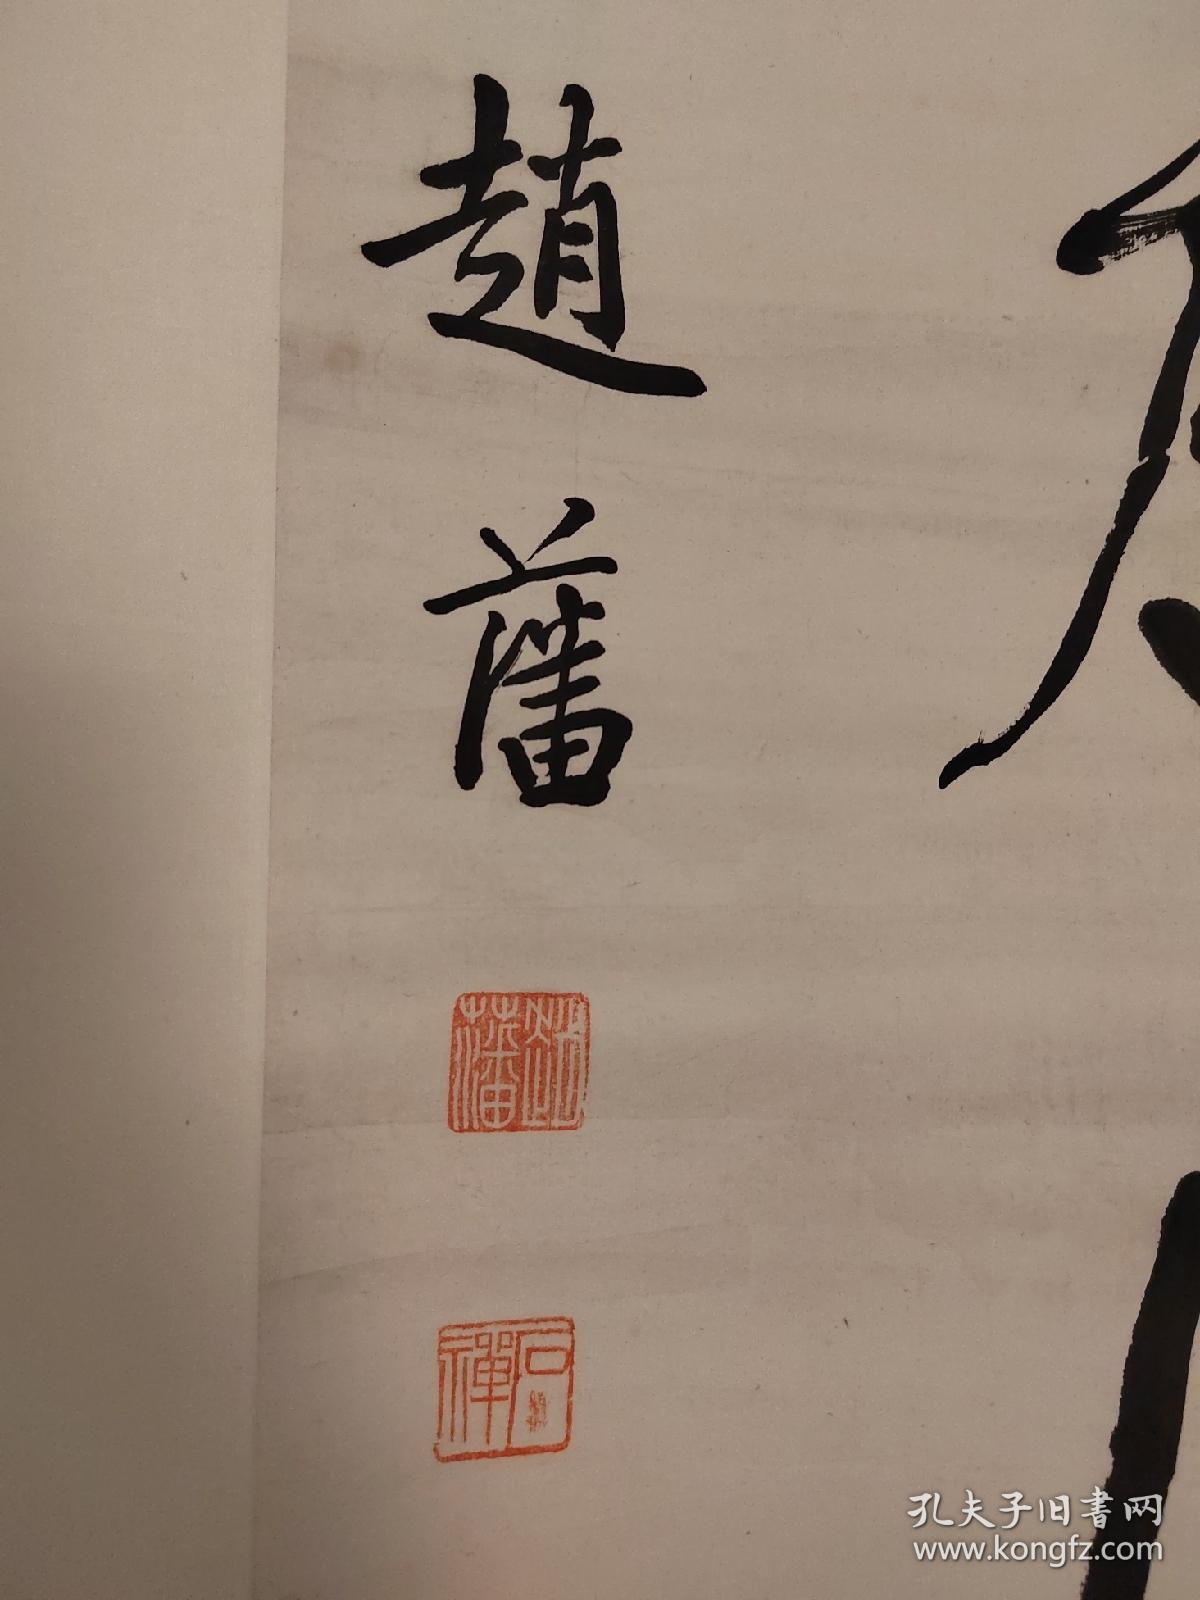 趙藩
趙藩
石禪
孔夫子旧書网
www.kongfz.com